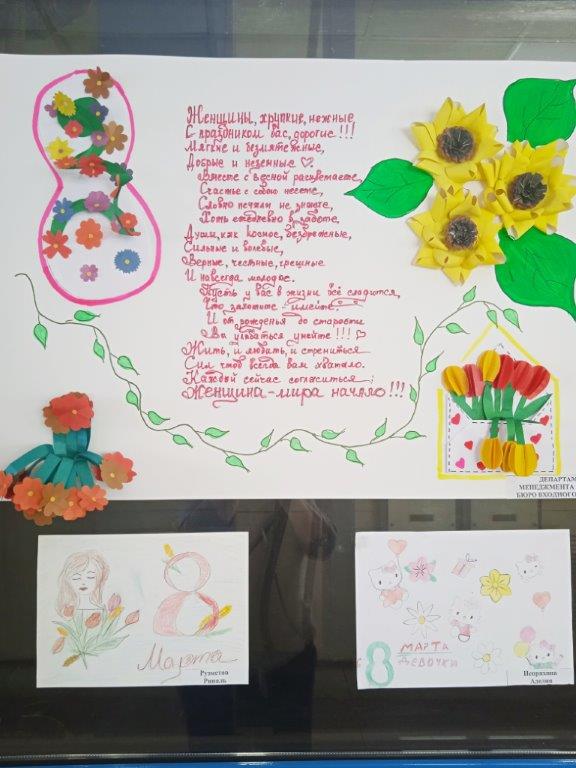 Женщины, хрупкие, нежные,
С праздником вас, дорогие!!!
Мягкие и безмятежные,
Добрые и неземные
Вместе с весной расцветаете,
Счастье с собою несете,
Словно печали не знаете,
Хоть ежедневно в работе.
Души, как космос, безбрежные,
Сильные и волевые,
Верные, честные, грешные
И навсегда молодые.
Пусть у вас в жизни всё сладится,
Что захотите - имейте.
И от рожденья до старости
Вы улыбаться умейте!!!
Жить, и любить, и стремиться
Сил чтоб всегда вам хватало.
Каждый сейчас согласится:
Женщина-мира начало!!!
ДЕПАРТАМ
МЕНЕДЖМЕНТА
БЮРО ВХОДНОГО
8
Марта
Рузметов
Равиль
8 МАРТА
ДЕВОЧКИ
Аделия